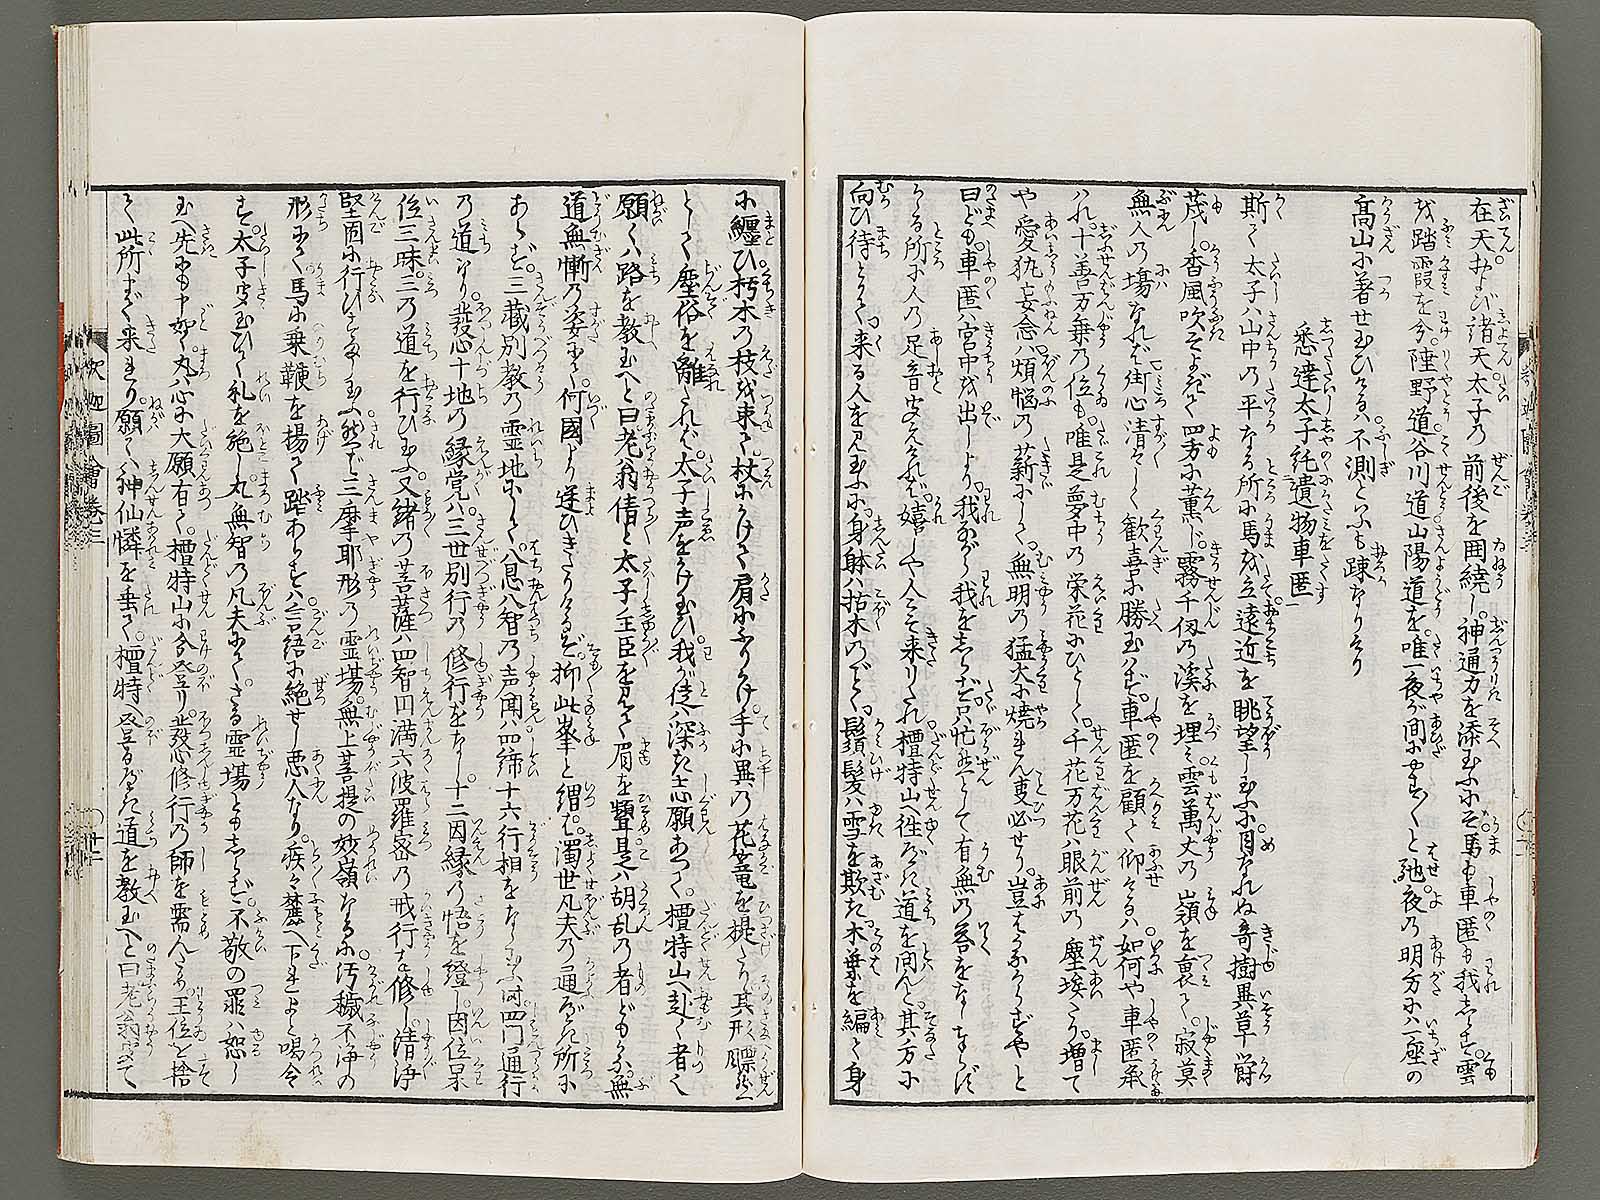 在天および諸天太子の前後を囲繞し神通力を添玉ふにぞ馬も車匿も我しらず雲
を踏霞を分陸野道谷川道山陽道を唯一夜が間にやす〳〵と馳夜の明方には一座の
高山に着せ玉ひけるは不測といふも疎なりけり
悉達太子託遺物車匿
斯て太子は山中の平なる所に馬を立遠近を眺望し玉ふに目なれぬ奇樹異草欝
茂し香風吹そよぎて四方に薫じ霧千仞の渓を埋み雲萬丈の嶺を裹て寂莫
無人の場なれば御心清々しく歓喜に勝玉はず車匿を顧て仰けるは如何や車匿承
はれ十善万乗の位も唯是夢中の栄花にひとしく千花万花は眼前の塵埃たり増て
や愛執妄念は煩悩の薪にして無明の猛火に焼れん事必せり豈はかなからずやと
曰ども車匿は宮中を出しより我ながら我をしらず只忙然として有無の答をなしならず
かゝる所に人の足音聞えければ嬉しや人こそ来りたれ檀特山往べき道を問んと其方に
向ひ待ところに来る人を見玉ふに身躰は枯木のごとく鬚髪は雪を欺き木葉を編て身
に纏ひ朽木の枝を束て杖にかけて肩にふりかけ手に異の花篭を提たり其形飄然
として塵俗を離たれば太子声をかけ玉ひ我が徒は深き志願あつて檀特山へ赴く者也
願くは路を教玉へと曰老翁倩々と太子主臣を見て眉を顰是は胡乱の者どもかな無
道無慚の姿にて何國より迷ひきたりけるぞ抑此峯と謂ば濁世凡夫の通ふべき所に
あらず三藏別教の霊地にして八忍八智の声聞は四締十六行相をなし玉ふ四門通行
の道なり発心十地の縁覚は三世別行の修行をなし十二因縁の悟を證し因位果
位三昧三の道を行ひ玉ふ又諸の菩薩は四智円満六波羅密の戒行を修し清浄
堅固に行ひすまし玉ふ然ば三摩耶形の霊場無上菩提の妙嶺なるに汚穢不浄の
形にて馬に乗鞭を揚て踏あらすは言語に絶せし悪人なり疾々麓へ下れよと喝令
す太子聞玉ひて礼を施し丸無智の凡夫にてさる霊場ともしらず不敬の罪は恕し
玉へ先にも申如く丸は心に大願有て檀特山に分登り発心修行の師を需んため王位を捨
て此所まで来れり願くは神仙憐を垂て檀特へ登るべき道を教玉へと曰老翁聞て
釈迦圖會巻三